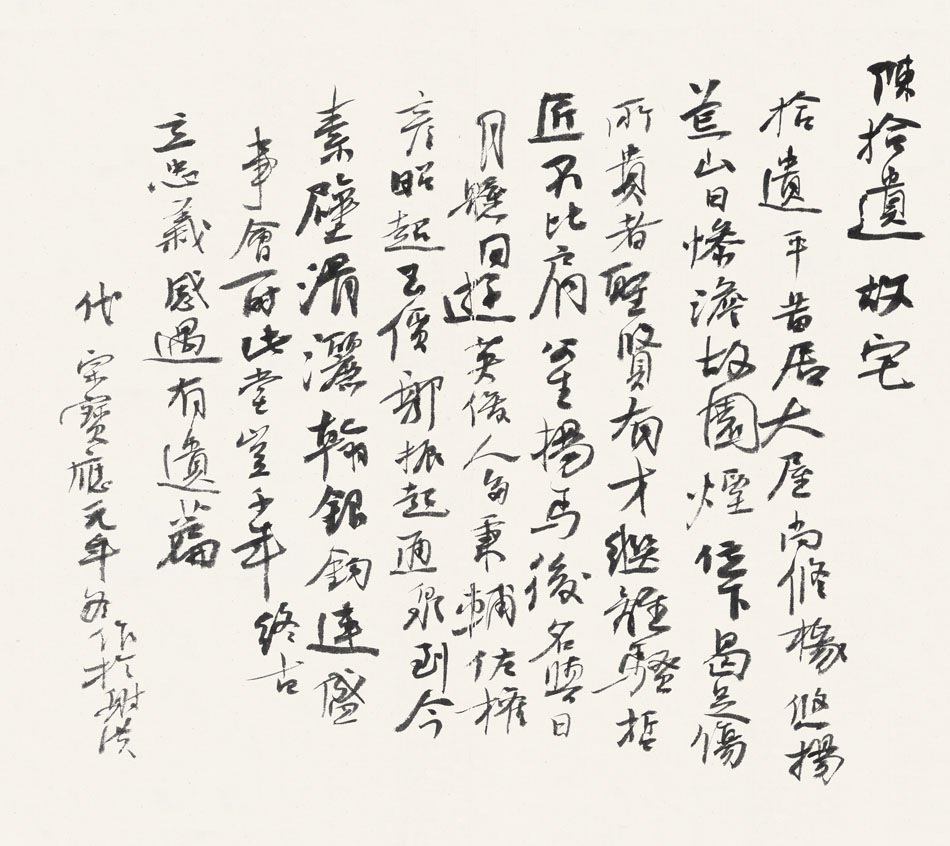 陳拾遺故宅
拾遺平昔居大屋尚脩椽悠揚
荒山日慘澹故園煙位下曷足傷
所貴者聖賢有才繼離騷哲
匠不比肩公生揚馬後名與日
月懸同遊英俊人多秉輔佐權
彥昭超玉價郭振起通泉到今
素壁滑灑翰銀鉤連盛
事會一時此堂豈千年終古
立忠義感遇有遺篇
代宗寶應元年冬作於射洪